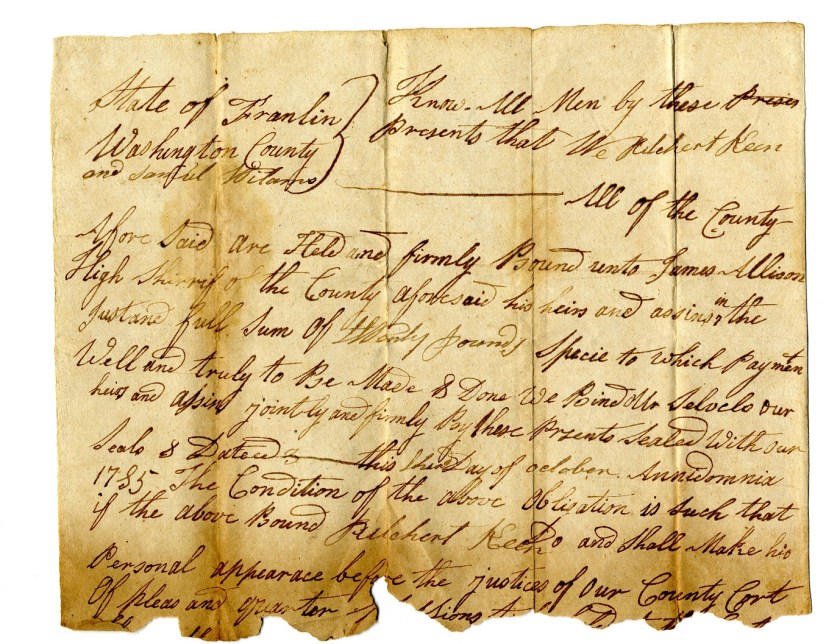 State of Franlin
Washington County
and Samuel Witams
Know All Men by these Preses
Presents that We Kelchert Keen
All of the County
Afore Said are Held and firmly Bound unto James Allison
High Shirrif of the County aforesaid his heirs and assins in the
Just and full Sum of twenty pounds Specie to which Paymen
Well and truly to Be Made & Done We Bind Our Selvels our
heirs and assins jointly and firmly By these Prsents Sealed With our
Seals & Dateed this Day of october Annidomnia
1785 The Condition of the above Oblisation is Such that
if the above Bound Kelchert Keen Do and Shall Make his
Personal appearace before the justices of Our County Cort
Of pleas and quarter